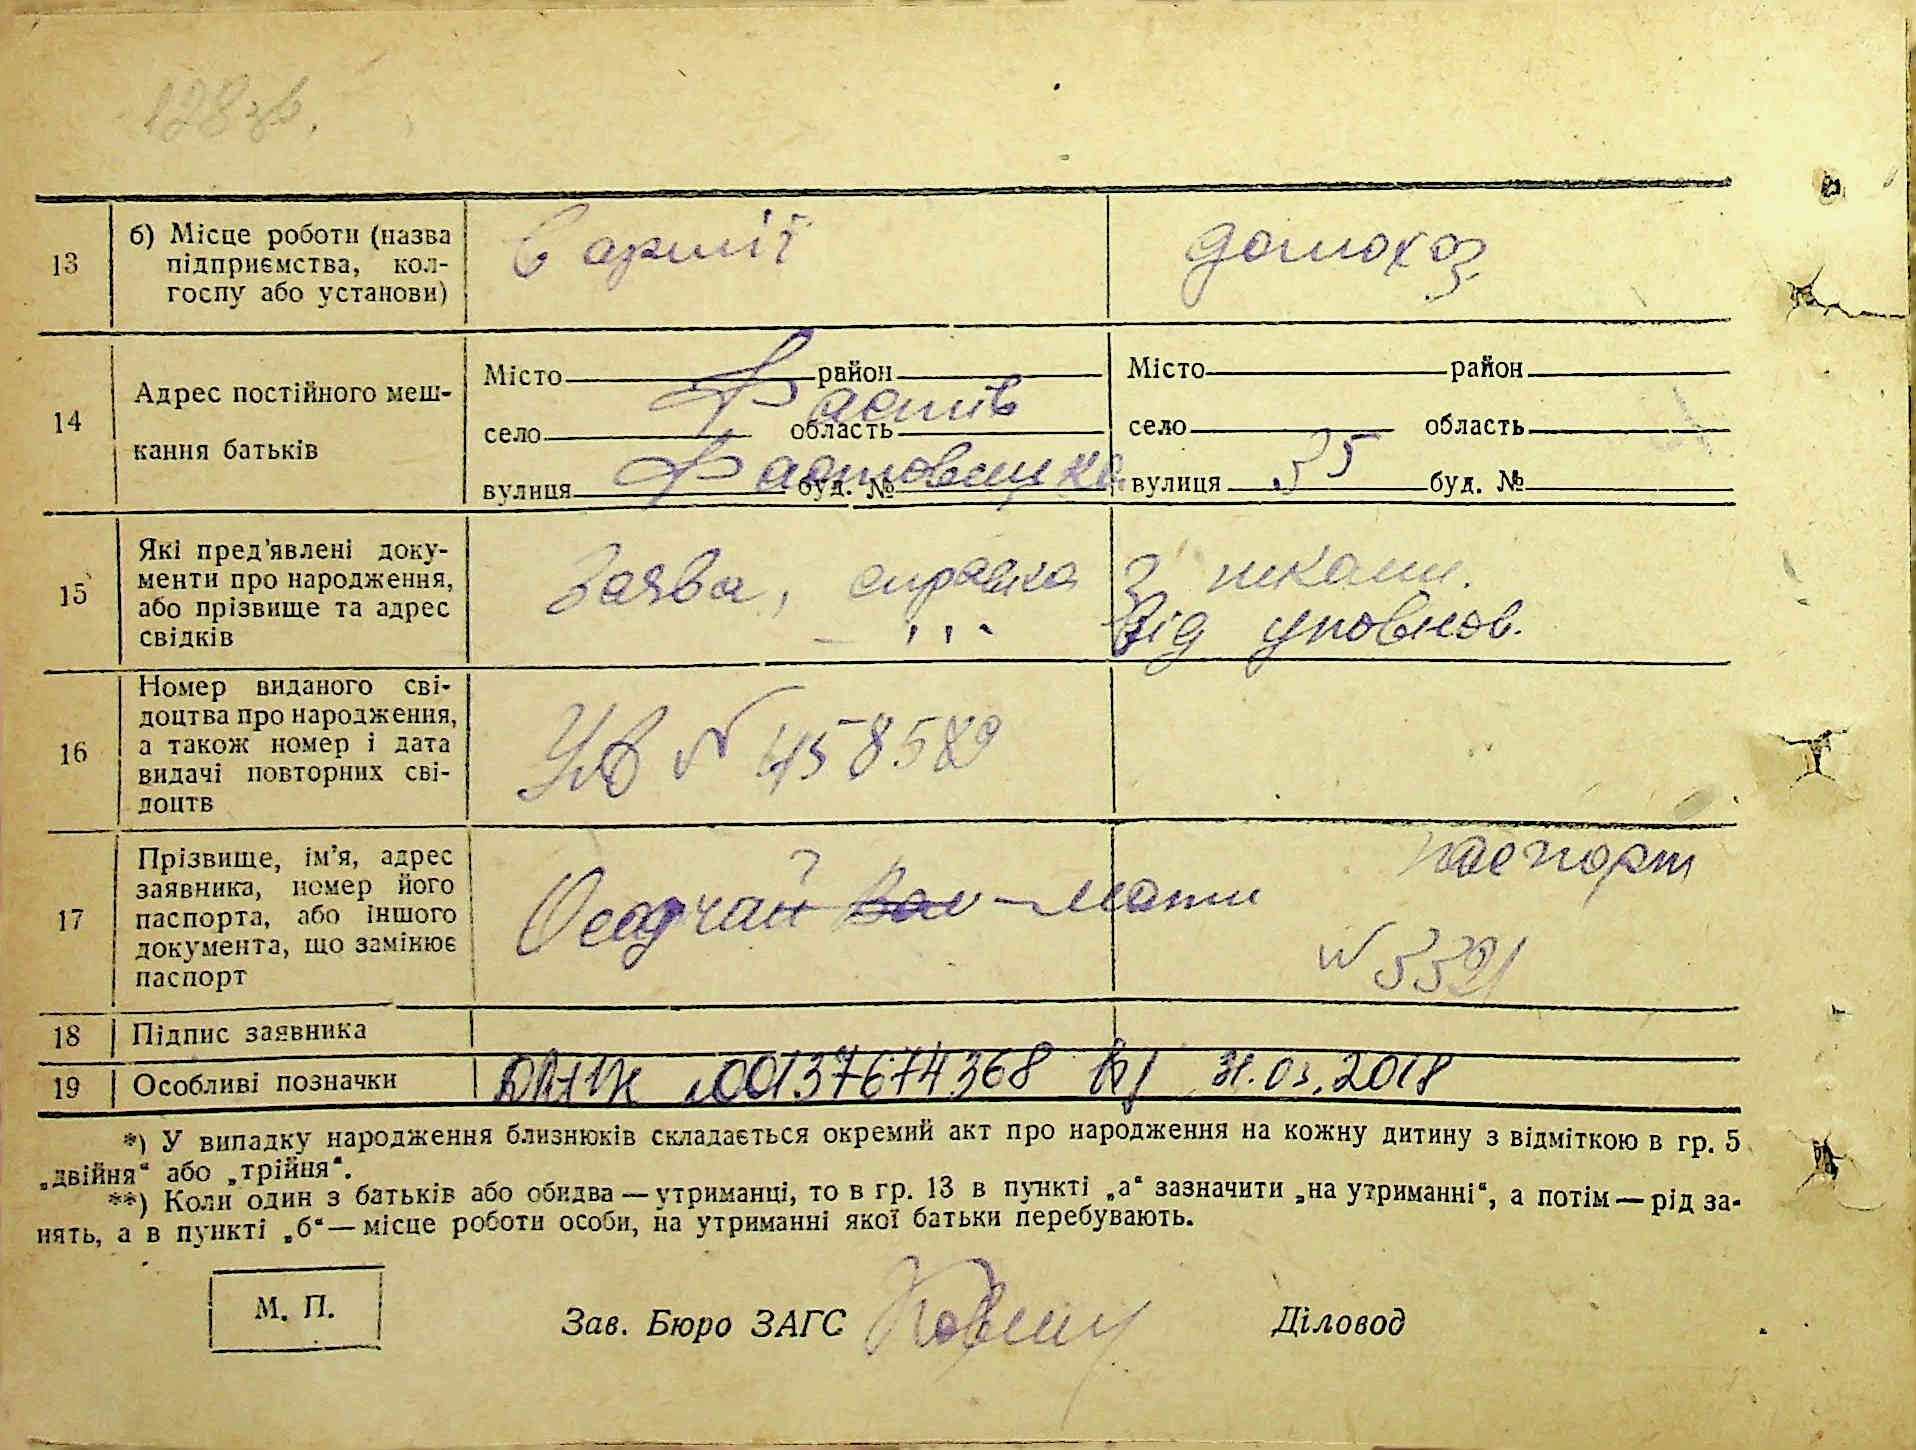 128 зв.
13
б) Місце роботи (назва
підприємства, кол-
госпу або установи)
в армії
домохоз
14
Адрес постійного меш-
кання батьків
Місто район
село область
вулиця буд. №
Фастів
Фастовецька
Місто район
село область
вулиця 35 буд. №
15
Які пред'явлені доку-
менти про народження,
або прізвище та адрес
свідків
Заява, справка з
— " — від уповнов.
16
Номер виданого сві-
доцтва про народження,
а також номер і дата
видачі повторних сві-
доцтв
№ 458589
17
Прізвище, ім'я, адрес
заявника, номер його
паспорта, або іншого
документа, що замінює
паспорт
Осадчай — мати паспорт
№
18
Підпис заявника
19
Особливі позначки
00137674368 31.03.2018
*) У випадку народження близнюків складається окремий акт про народження на кожну дитину з відміткою в гр. 5
„двійня“ або „трійня“.
**) Коли один з батьків або обидва — утриманці, то в гр. 13 в пункті „а“ зазначити „на утриманні“, а потім — рід за-
нять, а в пункті „б“ — місце роботи особи, на утриманні якої батьки перебувають.
М. П.
Зав. Бюро ЗАГС
Діловод